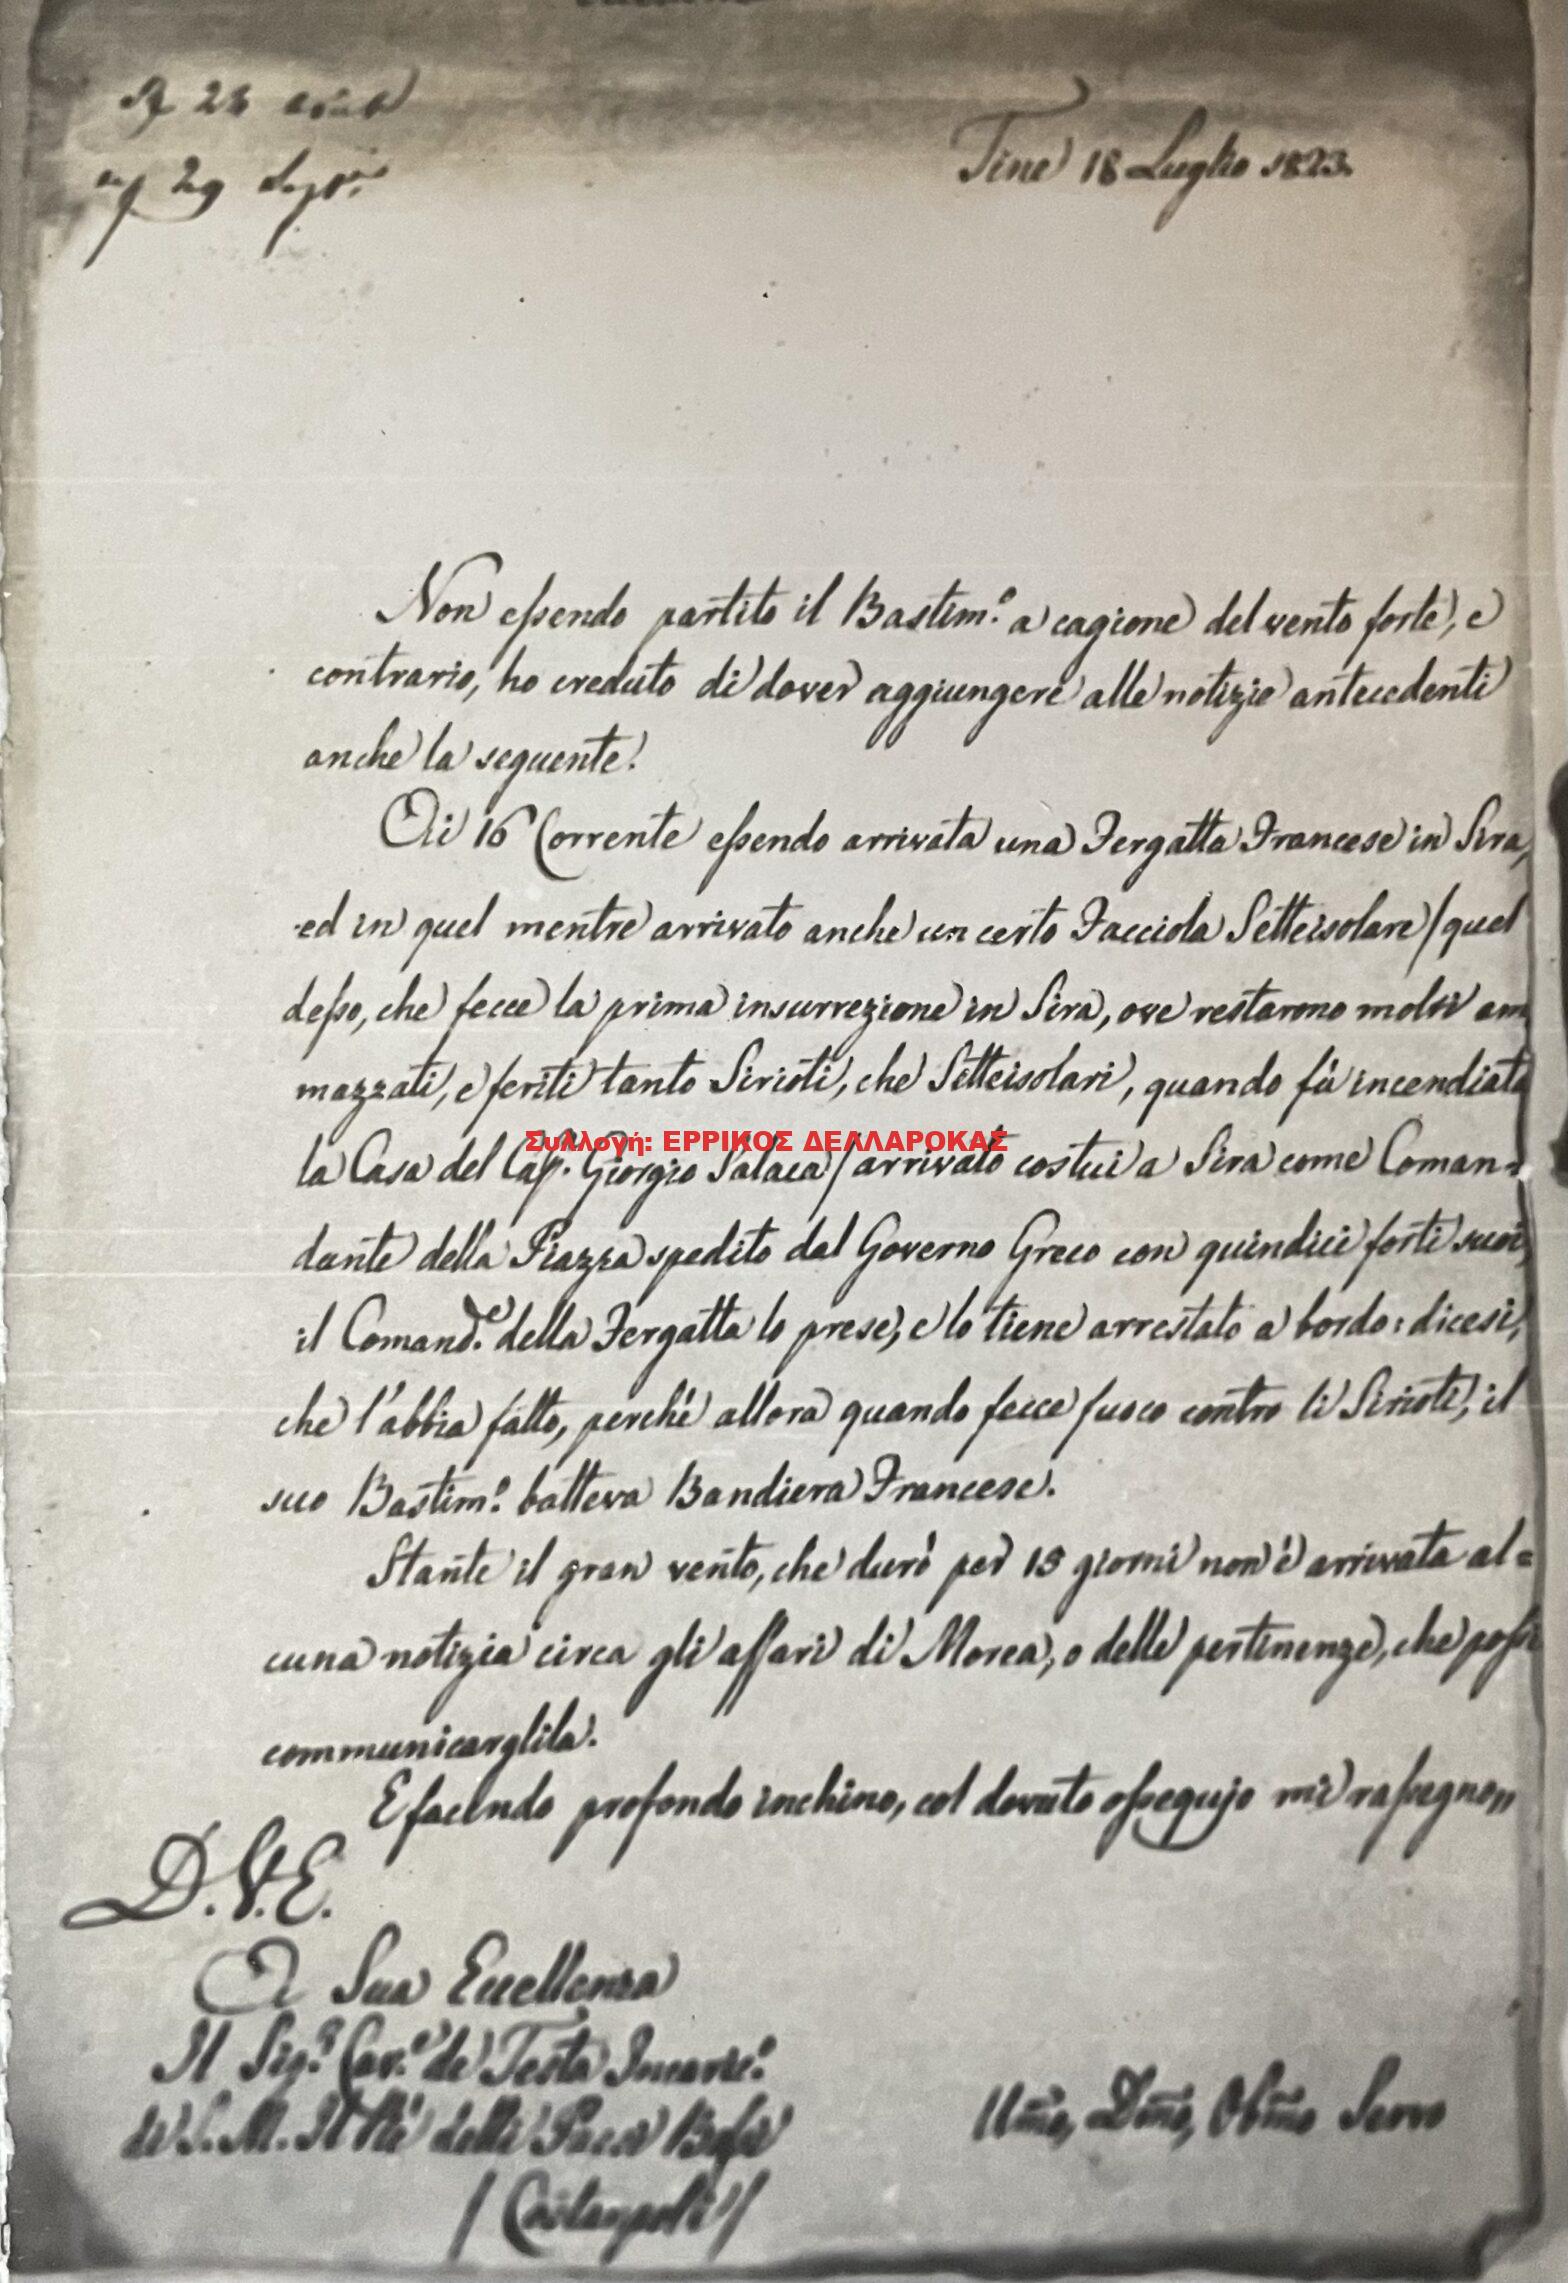 Tine 18 Luglio 1823.
Non essendo partito il Bastim.º a cagione del vento forte, e
contrario, ho creduto di dover aggiungere alle notizie antecedenti
anche la seguente.
Ai 16 Corrente essendo arrivata una Fergatta Francese in Sira,
ed in quel mentre arrivato anche un certo Facciola Setteisolare / quel
desso, che fecce la prima insurrezione in Sira, ove restarono molti am
mazzati, e feriti tanto Sirioti, che Setteisolari, quando fù incendiata
Συλλογή: ΕΡΡΙΚΟΣ ΔΕΛΛΑΡΟΚΑΣ
la Casa del Cap.n Giorgio Salaca / arrivato costui a Sira come Coman=
dante della Piazza spedito dal Governo Greco con quindici forti suoi,
il Comand.e della Fergatta lo prese, e lo tiene arrestato a bordo: dicesi,
che l'abbia fatto, perchè allora quando fecce fuoco contro li Sirioti, il
suo Bastim.º batteva Bandiera Francese.
Stante il gran vento, che durò per 15 giorni non è arrivata al=
cuna notizia circa gli affari di Morea, o delle pertinenze, che possi
communicarglila.
E facendo profondo inchino, col dovuto ossequjo mi rassegno,,
D. V. E.
A Sua Eccellenza
Il Sig.r Cav.e de Testa Incaric.º
di S. M. Il Rè delli Paesi Bassi
/ Costanpoli /
Umõ, Dmõ, Obmõ Servo